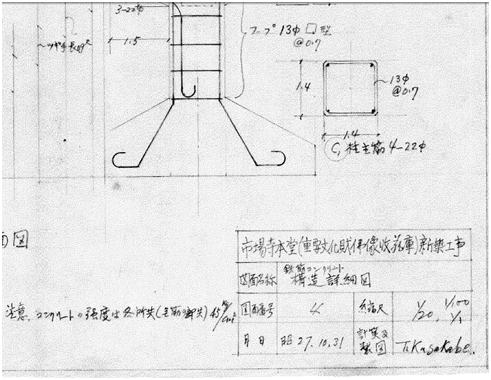 3-22φ
フープ 13φ □型
@0.7
1.5
13φ
@0.7
1.4
1.4
C₁ 柱主筋 4-22φ
図
市場寺本堂(重要文化財仏像収蔵庫)新築工事
図面名称 鉄筋コンクリート
構造詳細図
注意、コンクリートの強度は各所共
45 kg/cm²
図面番号 4 縮尺 1/20, 1/100, 1/1
月日 昭27.10.31 計算及製図 T. Kasakabe.